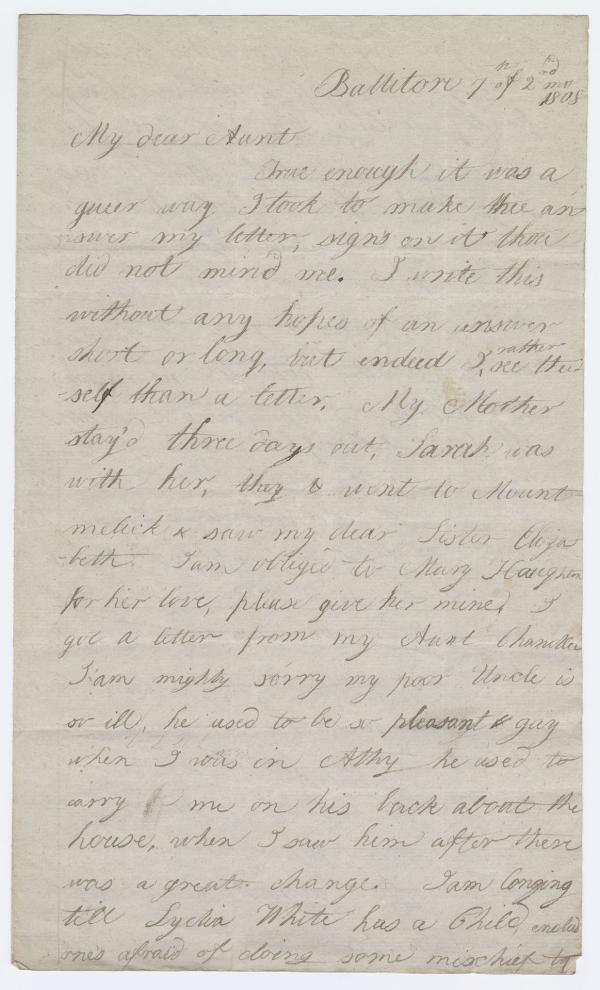 Ballitore 7th of 2nd mo
1808
My dear Aunt
True enough it was a
queer way I took to make thee an
swer my letter, signs on it thou
did not mind me. I write this
without any hopes of an answer
short or long, but indeed I'd rather see thee
self than a letter. My Mother
stay'd three days out, Sarah was
with her, they & went to Mount
melick & saw my dear Sister Eliza
-beth. I am obliged to Mary Haughton
for her love, please give her mine, I
got a letter from my Aunt Chandlee
I am mighty sorry my poor Uncle is
so ill, he used to be so pleasant & guy
when I was in Athy he used to
carry me on his back about the
house, when I saw him after there
was a great change. I am longing
till Lydia White has a Child,
one's afraid of doing some mischief